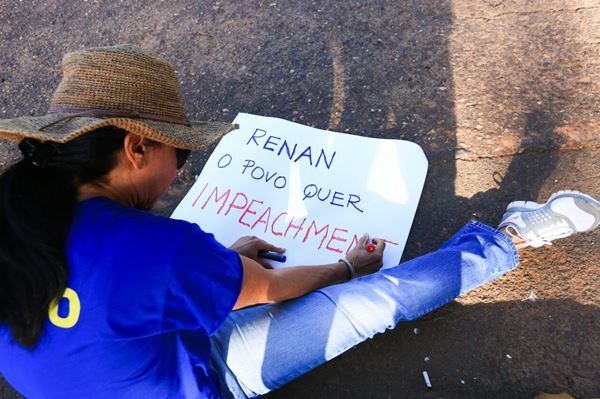 RENAN
O POVO QUER
IMPEACHMENT
O